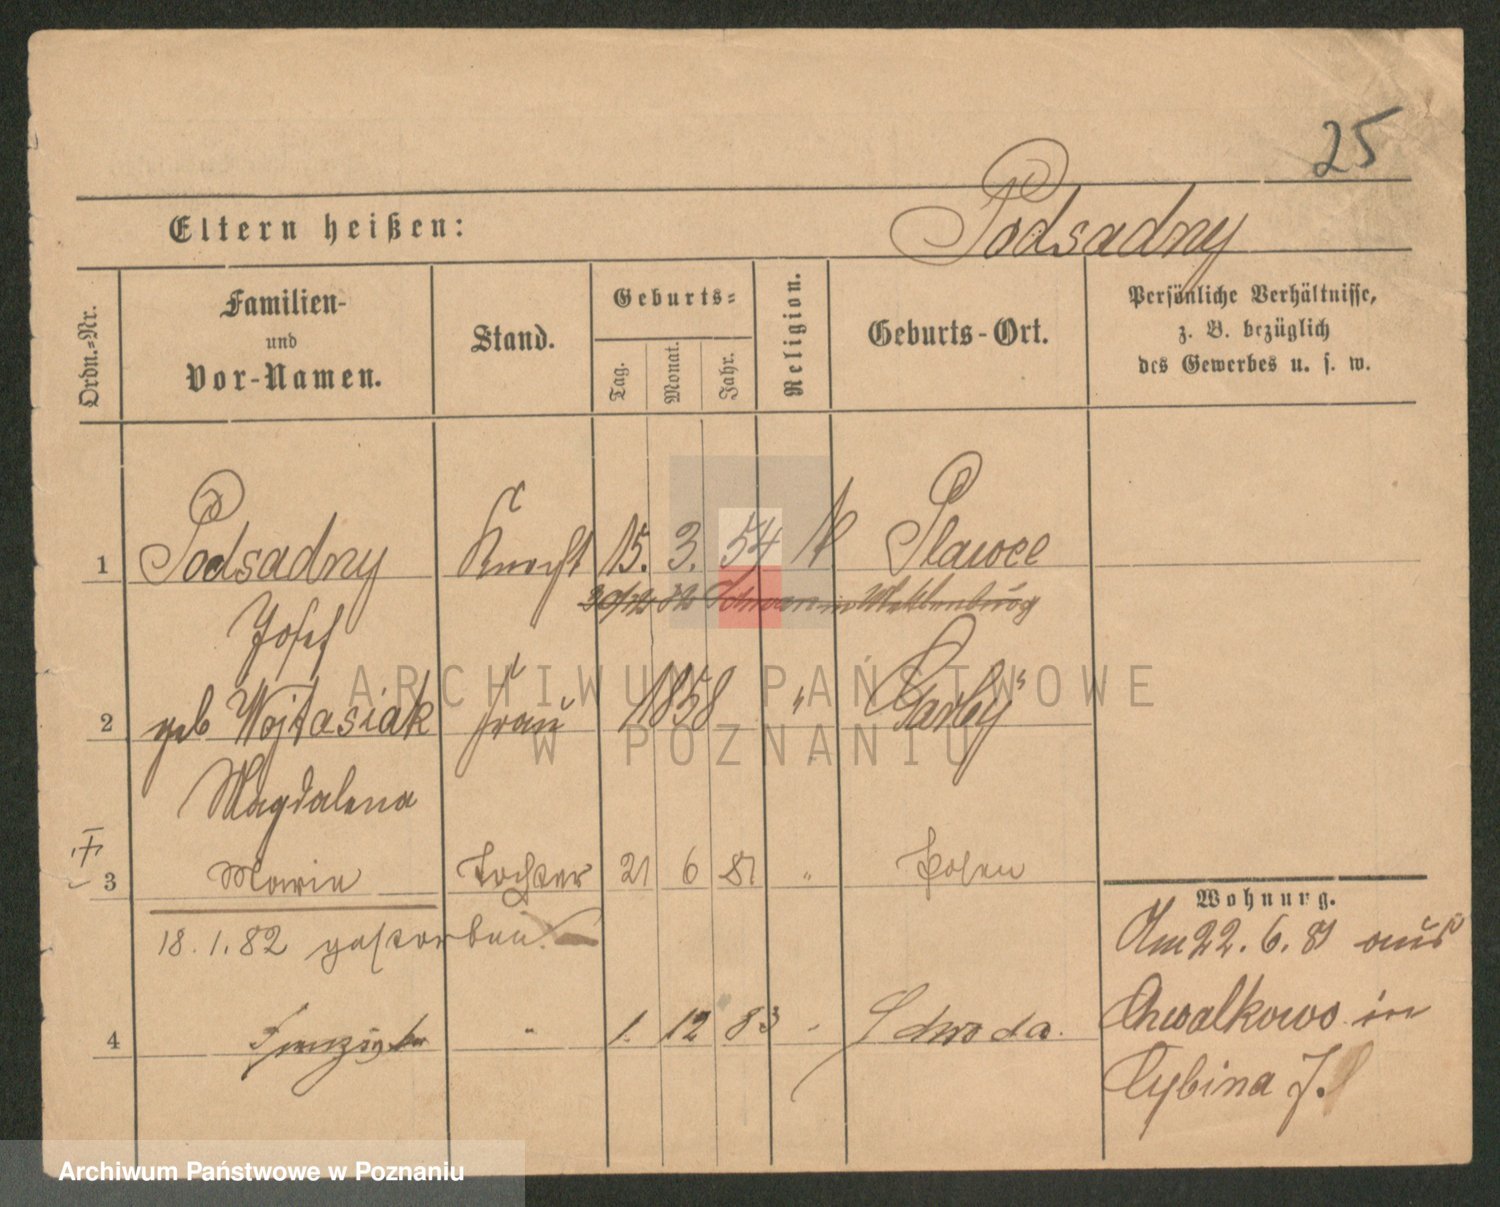 25
Eltern heißen: Podsadny
Ordn.-Nr.
Familien-
und
Vor-Namen.
Stand.
Geburts-
Tag.
Monat.
Jahr.
Religion.
Geburts-Ort.
Persönliche Verhältnisse,
z. B. bezüglich
des Gewerbes u. s. w.
1 Podsadny Knecht 15. 3. 54 K Plawce
Josef
2 geb Wojtasiak Frau 1858 " Garby
Magdalena
3 Marie Tochter 21 6 81 " Posen
18. 1. 82 gestorben.
4 " 1. 12 83 "
Wohnung.
Am 22. 6. 81 aus
Chwalkowo in
Cybina
ARCHIWUM PAŃSTWOWE
W POZNANIU
Archiwum Państwowe w Poznaniu